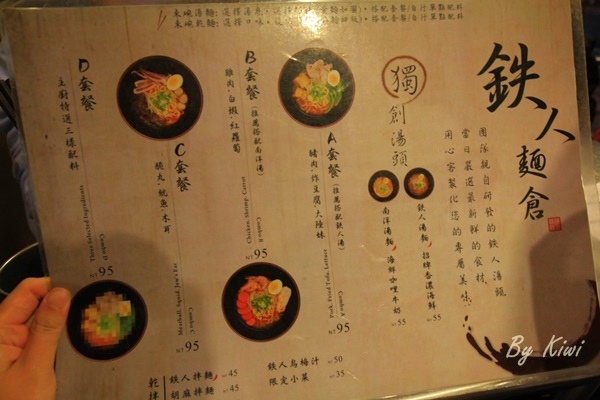 鉄人麵倉
團隊親自研發的鉄人湯頭
當日嚴選最新鮮的食材、
用心客製化您的專屬美味。
獨創湯頭
鉄人湯麵 招牌香濃海鮮 55
南洋湯麵 海鮮咖哩牛奶 55
A套餐 (推薦搭配鉄人湯)
豬肉·炸豆腐·大陸妹
Pork, Fried Tofu, Lettuce
Combo A
NT 95
B套餐 (推薦搭配南洋湯)
雞肉·白蝦·紅蘿蔔
Chicken, Shrimp, Carrot
Combo B
NT 95
C套餐
貢丸·魷魚·木耳
Meatball, Squid, Jew's Ear
Combo C
NT 95
D套餐
主廚特選三樣配料
Three Selected Ingredients
Combo D
NT 95
乾拌
鉄人拌麵 NT 45
胡麻拌麵 NT 45
鉄人烏梅汁 NT 50
限定小菜 NT 35
By Kiwi